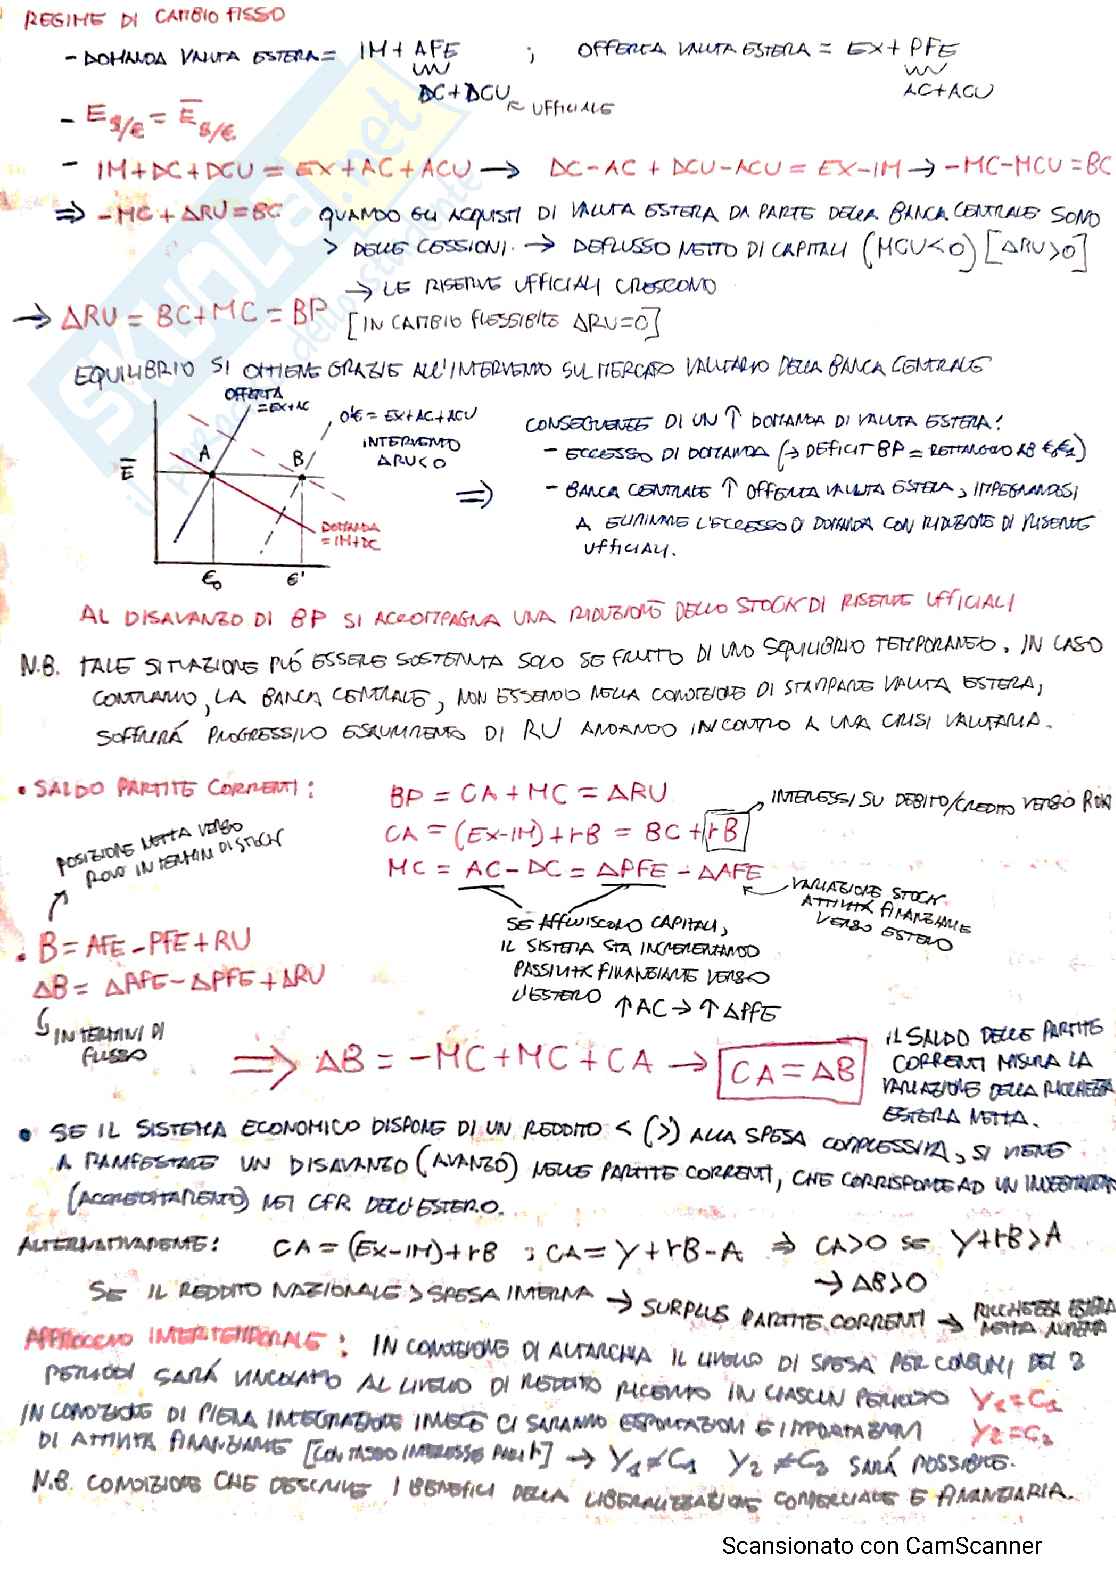 REGIME DI CAMBIO FISSO
- DOMANDA VALUTA ESTERA = IM + AFE ; OFFERTA VALUTA ESTERA = EX + PFE
DC + DCU AC + ACU
UFFICIALE
- E$/€ = E̅$/€
- IM + DC + DCU = EX + AC + ACU → DC - AC + DCU - ACU = EX - IM → - MC - MCU = BC
⇒ - MC + ΔRU = BC QUANDO GLI ACQUISTI DI VALUTA ESTERA DA PARTE DELLA BANCA CENTRALE SONO
> DELLE CESSIONI. → DEFLUSSO NETTO DI CAPITALI (MCU < 0) [ΔRU > 0]
→ LE RISERVE UFFICIALI CRESCONO
→ ΔRU = BC + MC = BP [IN CAMBIO FLESSIBILE ΔRU = 0]
EQUILIBRIO SI OTTIENE GRAZIE ALL'INTERVENTO SUL MERCATO VALUTARIO DELLA BANCA CENTRALE
OFFERTA
= EX + AC
O'€ = EX + AC + ACU
INTERVENTO
ΔRU < 0
A
B
E̅
DOMANDA
= IM + DC
€0 €'
CONSEGUENZE DI UN ↑ DOMANDA DI VALUTA ESTERA:
- ECCESSO DI DOMANDA (→ DEFICIT BP = RETTANGOLO AB
⇒ - BANCA CENTRALE ↑ OFFERTA VALUTA ESTERA, IMPEGNANDOSI
A ELIMINARE L'ECCESSO DI DOMANDA CON RIDUZIONE DI RISERVE
UFFICIALI.
AL DISAVANZO DI BP SI ACCOMPAGNA UNA RIDUZIONE DELLO STOCK DI RISERVE UFFICIALI
N.B. TALE SITUAZIONE PUÓ ESSERE SOSTENUTA SOLO SE FRUTTO DI UNO SQUILIBRIO TEMPORANEO. IN CASO
CONTRARIO, LA BANCA CENTRALE, NON ESSENDO NELLA CONDIZIONE DI STAMPARE VALUTA ESTERA,
SOFFRIRÁ PROGRESSIVO ESAURIMENTO DI RU ANDANDO INCONTRO A UNA CRISI VALUTARIA.
• SALDO PARTITE CORRENTI:
BP = CA + MC = ΔRU
INTERESSI SU DEBITO/CREDITO VERSO ROW
CA = (EX - IM) + rB = BC + rB
MC = AC - DC = ΔPFE - ΔAFE
VARIAZIONE STOCK
ATTIVITÁ FINANZIARIE
VERSO ESTERO
POSIZIONE NETTA VERSO
ROW IN TERMINI DI STOCK
SE AFFLUISCONO CAPITALI,
IL SISTEMA STA INCREMENTANDO
PASSIVITÁ FINANZIARIE VERSO
L'ESTERO ↑ AC → ↑ ΔPFE
• B = AFE - PFE + RU
ΔB = ΔAFE - ΔPFE + ΔRU
IN TERMINI DI
FLUSSO
⇒ ΔB = - MC + MC + CA → CA = ΔB
IL SALDO DELLE PARTITE
CORRENTI MISURA LA
VARIAZIONE DELLA RICCHEZZA
ESTERA NETTA.
• SE IL SISTEMA ECONOMICO DISPONE DI UN REDDITO < (>) ALLA SPESA COMPLESSIVA, SI VIENE
A MANIFESTARE UN DISAVANZO (AVANZO) NELLE PARTITE CORRENTI, CHE CORRISPONDE AD UN INDEBITAMENTO
(ACCREDITAMENTO) NEI CFR DELL'ESTERO.
ALTERNATIVAMENTE: CA = (EX - IM) + rB ; CA = Y + rB - A ⇒ CA > 0 SE Y + rB > A
→ ΔB > 0
SE IL REDDITO NAZIONALE > SPESA INTERNA → SURPLUS PARTITE CORRENTI → RICCHEZZA ESTERA
NETTA AUMENTA
APPROCCIO INTERTEMPORALE: IN CONDIZIONE DI AUTARCHIA IL LIVELLO DI SPESA PER CONSUMI DEI 2
PERIODI SARÁ VINCOLATO AL LIVELLO DI REDDITO RICEVUTO IN CIASCUN PERIODO Y1 = C1
IN CONDIZIONE DI PIENA INTEGRAZIONE INVECE CI SARANNO ESPORTAZIONI E IMPORTAZIONI Y2 = C2
DI ATTIVITÁ FINANZIARIE [CON TASSO INTERESSE PARI A r] → Y1 ≠ C1 Y2 ≠ C2 SARÁ POSSIBILE.
N.B. CONDIZIONE CHE DESCRIVE I BENEFICI DELLA LIBERALIZZAZIONE COMMERCIALE E FINANZIARIA.
Scansionato con CamScanner
SKUOLA.net